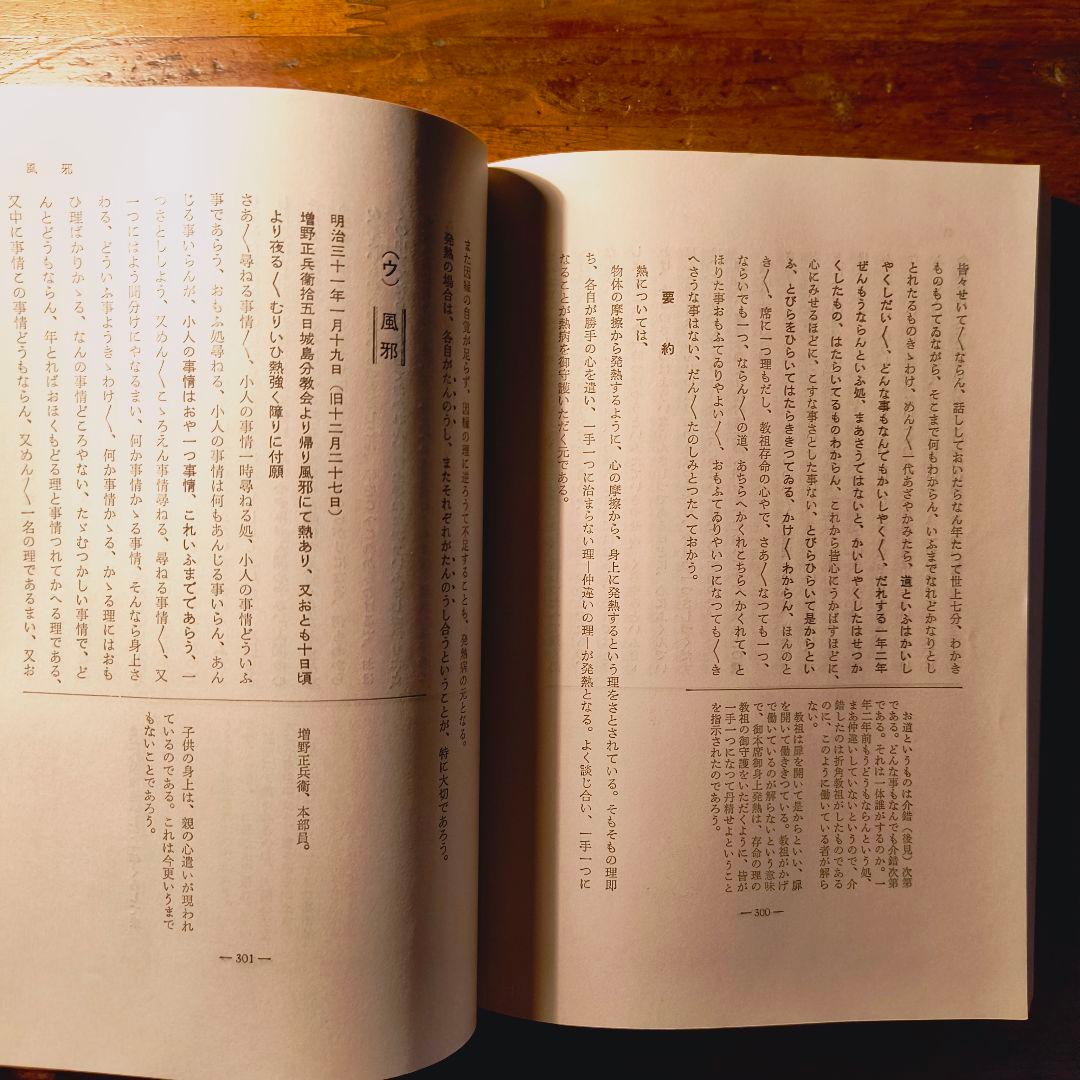 皆々せいて〱ならん、話ししておいたらなん年たつて世上七分、わかき
ものもつてゐながら、そこまで何もわからん、いふまでなれどかなりとし
とれたるものきゝわけ、めん〱一代あざやかみたら、道といふはかいし
やくしだい〱、どんな事もなんでもかいしやく〱、だれする一年二年
ぜんもうならんといふ処、まあさうではないと、かいしやくしたはせつか
くしたもの、はたらいてるものわからん、これから皆心にうかばすほどに、
心にみせるほどに、こすな事さとした事ない、とびらひらいて是からとい
ふ、とびらをひらいてはたらききつてゐる、かけ〱わからん、ほんのと
き〱、席に一つ理もだし、教祖存命の心やで、さあ〱なつても一つ、
ならいでも一つ、ならん〱の道、あちらへかくれこちらへかくれて、と
ほりた事おもふてゐりやよい〱、おもふてゐりやいつになつても〱き
へさうな事はない、だん〱たのしみとつたへておかう。
お道というものは介錯（後見）次第
である。どんな事もなんでも介錯次第
である。それは一体誰がするのか。一
年二年前もうどうもならんという処、
まあ仲違いしていないというので、介
錯したのは折角教祖がしたものである
のに、このように働いている者が解ら
ない。
教祖は扉を開いて是からといい、扉
を開いて働ききつている。教祖がかげ
で働いているのが解らないという意味
で、御本席御身上発熱は、存命の理の
教祖の御守護をいただくように、皆が
一手一つになつて丹精せよということ
を指示されたのであろう。
要約
熱については、
物体の摩擦から発熱するように、心の摩擦から、身上に発熱するという理をさとされている。そもそもの理即
ち、各自が勝手の心を遣い、一手一つに治まらない理―仲違いの理―が発熱となる。よく談じ合い、一手一つに
なることが熱病を御守護いただく元である。
―300―
また因縁の自覚が足らず、因縁の理に逆らうて不足することも、発熱病の元となる。
発熱の場合は、各自がたんのうし、またそれぞれがたんのうし合うということが、特に大切であろう。
（ウ）風邪
明治三十一年一月十九日（旧十二月二十七日）
増野正兵衞拾五日城島分教会より帰り風邪にて熱あり、又おとも十日頃
より夜る〱むりいひ熱強く障りに付願
さあ〱尋ねる事情〱、小人の事情一時尋ねる処、小人の事情どういふ
事であらう、おもふ処尋ねる、小人の事情は何もあんじる事いらん、あん
じる事いらんが、小人の事情はおや一つ事情、これいふまでであらう、一
つさとししよう、又めん〱こゝろえん事情尋ねる、尋ねる事情〱、又
一つにはよう聞分けにやなるまい、何か事情かゝる事情、そんなら身上さ
わる、どういふ事ようきゝわけ〱、何か事情かゝる、かゝる理にはおも
ひ理ばかりかゝる、なんの事情どころやない、たゞむつかしい事情で、ど
んとどうもならん、年とればおほくもどる理と事情つれてかへる理である、
又中に事情この事情どうもならん、又めん〱一名の理であるまい、又お
増野正兵衞、本部員。
子供の身上は、親の心遣いが現われ
ているのである。これは今更いうまで
もないことであろう。
―301―
風邪